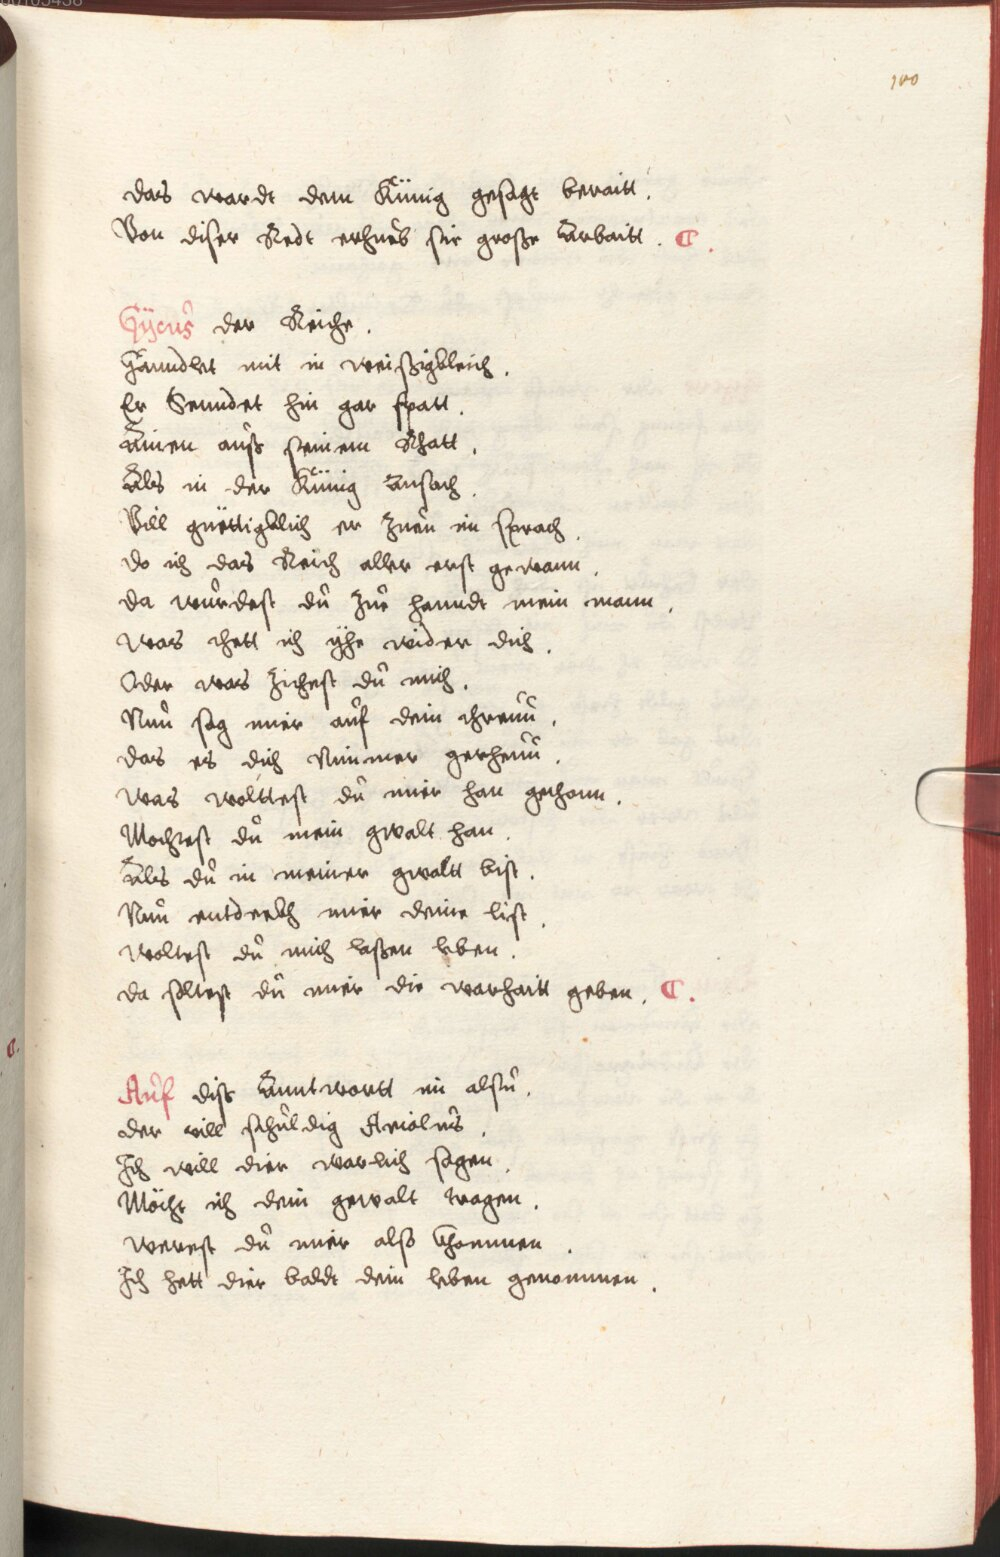 100
das wardt dem Künig gesagt beraitt.
Von diser Redt erhueb sir große Arbaitt. C.
Gÿcus der Reiche.
Hanndlet mit in weißigkleich.
Er Senndet hin gar spatt.
Ainen auß seinem Rhatt.
Als in der Künig Ansach.
Vill guettigklich er Zueu im sprach.
do ich das Reich aller erst gewann.
da würdest dü Züe hanndt mein mann.
was thett ich ÿhe wider dich.
Oder was Zichest dü mich.
Nuü sag mier aüf dein threuü.
das es dich Nimmer gerheuü.
was wolttest dü mier han gethonn.
Mochtest dü mein gwalt han.
Als dü in meiner gwaltt bist.
Nuü entdeckh mier deine list.
woltest dü mich laßen leben.
da soltest dü mier die warhaitt geben. C.
Aüf diß Anntwortt im alsü.
der vill schüldig Ariolus.
Ich will dier warlich sagen.
Möcht ich dein gewalt tragen.
werest dü mier also Khommen.
Ich hett dier baldt dein leben genommen.